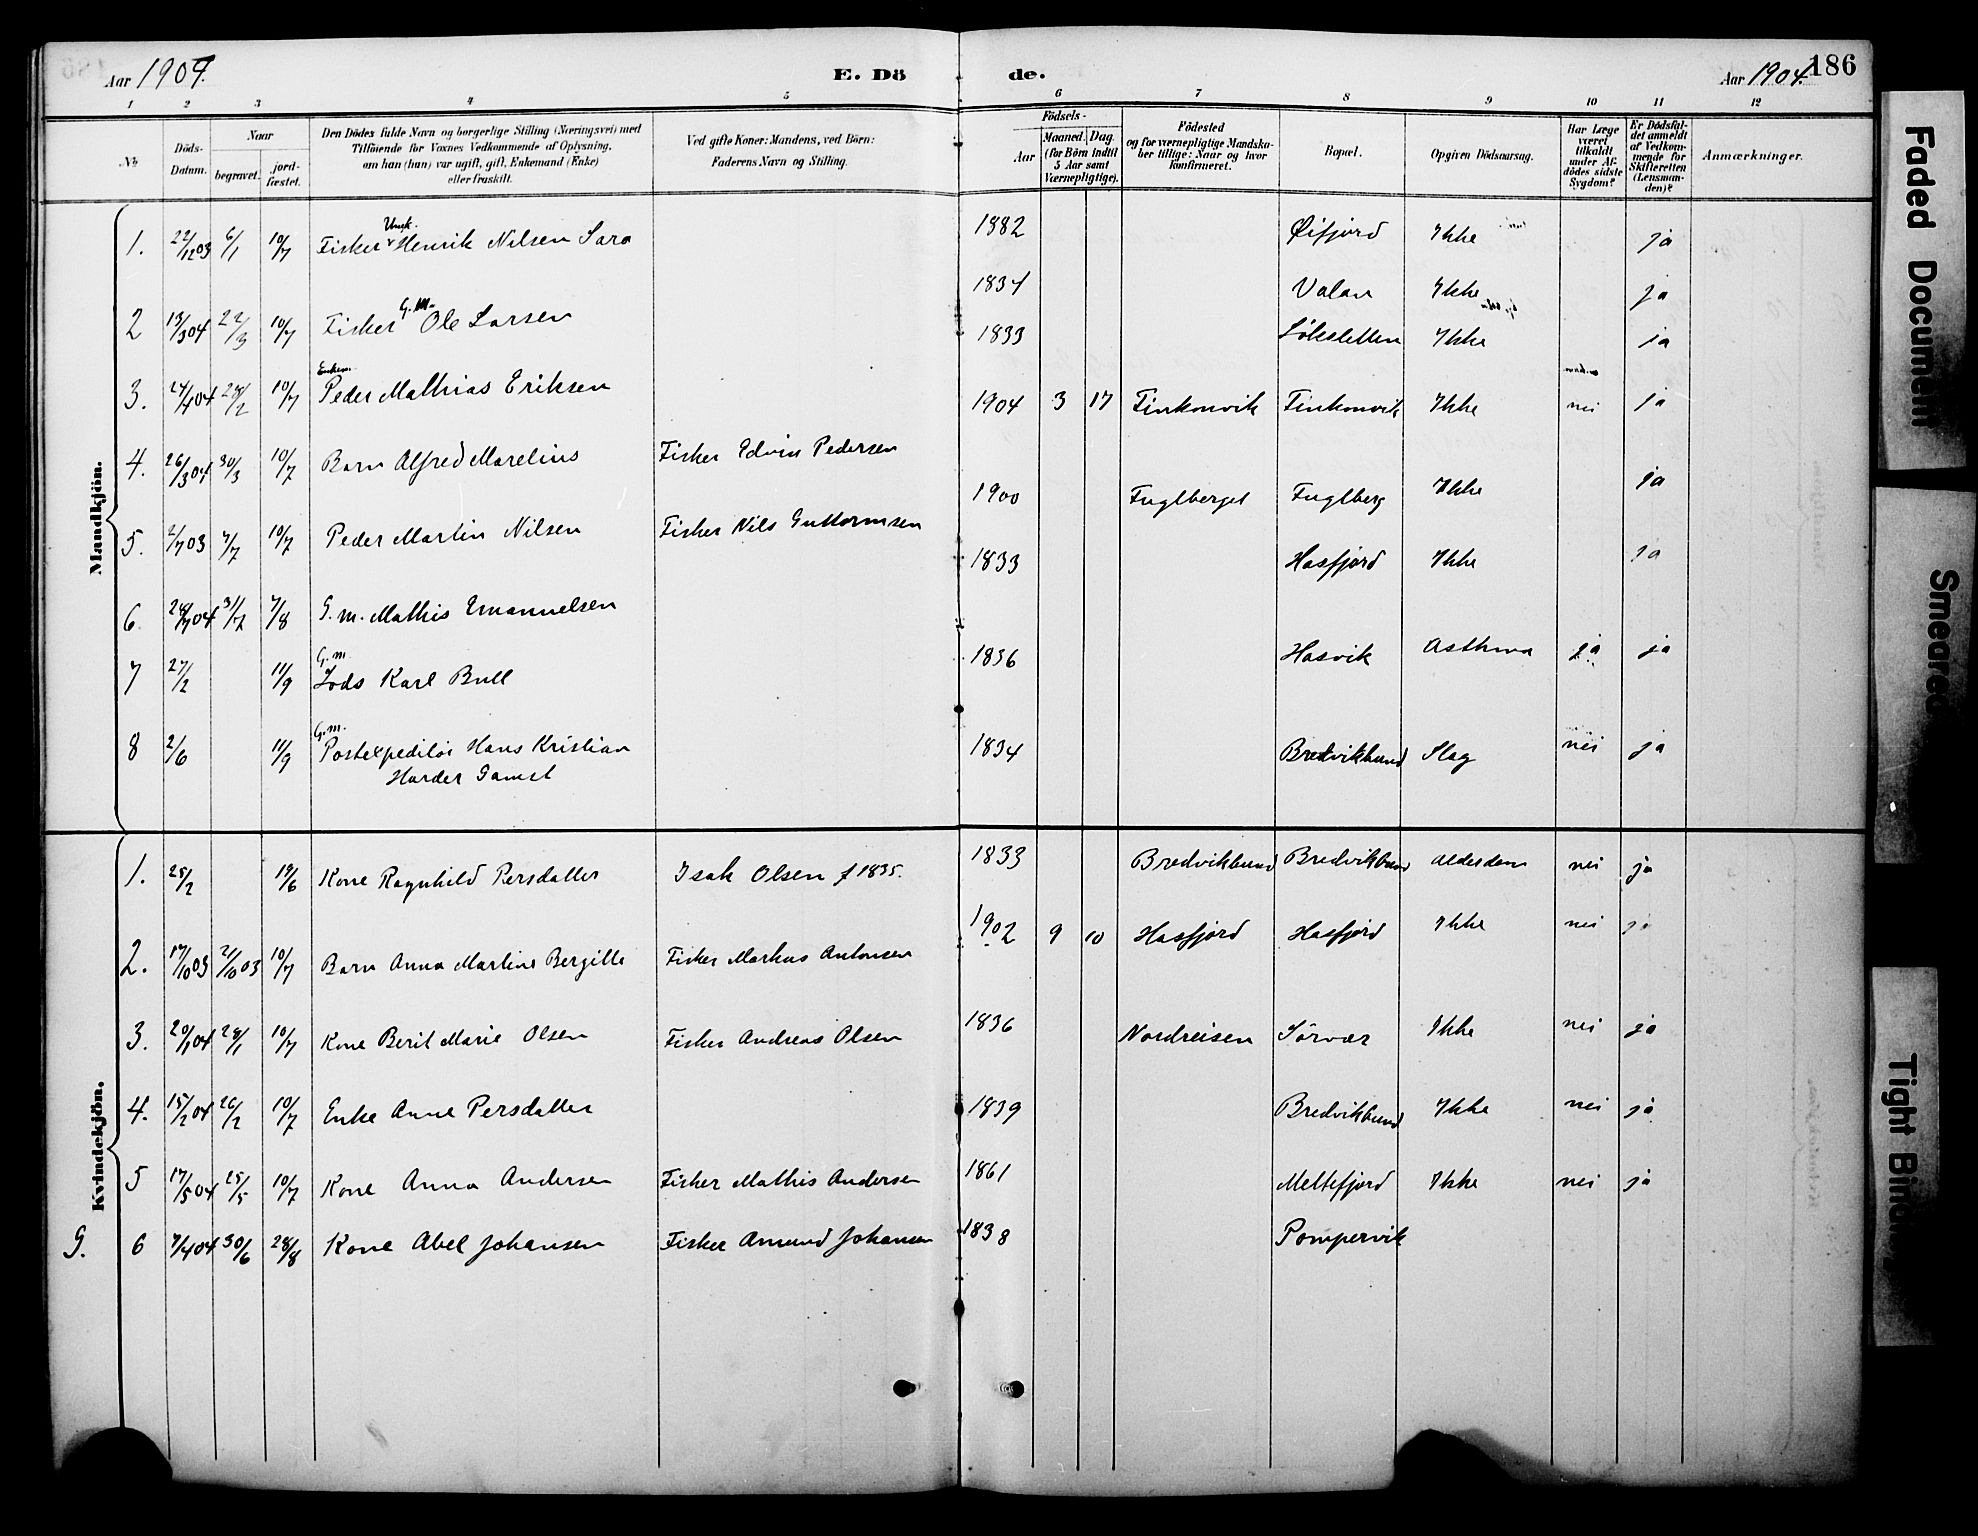 Aar 1904. E. Dö de. Aar 1904. 186
1 2 3 4 5 6 7 8 9 10 11 12
No
Döds-Datum.
Naar
begravet.
jord-fæstet.
Den Dödes fulde Navn og borgerlige Stilling (Næringsvei) med
Tilföiende for Voxnes Vedkommende af Oplysning,
om han (hun) var ugift, gift, Enkemand (Enke)
eller fraskilt.
Ved gifte Koner: Mandens, ved Börn:
Faderens Navn og Stilling.
Födsels-
Aar
Maaned. Dag.
(for Börn indtil
5 Aar samt
Værnepligtige).
Födested
og for værnepligtige Mandska-
ber tillige: Naar og hvor
konfirmeret.
Bopæl.
Opgiven Dödsaarsag.
Har Læge
været
tilkaldt
under Af-
dödes sidste
Sygdom?
Er Dödsfal-
det anmeldt
af Vedkom-
mende for
Skifteretten
(Lensman-
den)?
Anmærkninger.
Mandkjön.
1. 22/12 03 6/1 10/7 Fisker Ungk. Henrik Nilsen Sara 1882 Øifjord Ikke ja
2 13/3 04 22/3 10/7 Fisker G.M. Ole Larsen 1834 Valan Ikke ja
3. 24/4 04 28/2 10/7 Enkem. Peder Mathias Eriksen 1833 Löksletten Ikke ja
4. 26/3 04 30/3 10/7 Barn Alfred Marelius Fisker Edvin Pedersen 1904 3 17 Finkonvik Finkonvik Ikke nei ja
5. 2/7 03 7/7 10/7 Peder Martin Nilsen Fisker Nils Guttormsen 1900 Fuglberget Fuglberg Ikke ja
6. 28/7 04 31/7 7/8 G.m. Mathis Emanuelsen 1833 Hasfjord Ikke ja
7 27/2 11/9 G.m. Lods Karl Bull 1836 Hasvik Asthma ja ja
8 2/6 11/9 G.m. Postexpeditör Hans Kristian
Harder Gamst 1834 Bredvikbund Slag nei ja
Kvindekjön.
1. 25/2 19/6 Kone Ragnhild Persdatter Isak Olsen f 1835. 1833 Bredvikbund Bredvikbund Alderdom nei ja
2. 17/10 03 21/10 03 10/7 Barn Anna Martine Bergitte Fisker Markus Antonsen 1902 9 10 Hasfjord Hasfjord Ikke nei ja
3. 20/1 04 28/1 10/7 Kone Berit Marie Olsen Fisker Andreas Olsen 1836 Nordreisen Sörvær Ikke nei ja
4. 15/2 04 26/2 10/7 Enke Anne Persdatter 1839 Bredvikbund Ikke nei ja
5 17/5 04 25/5 10/7 Kone Anna Andersen Fisker Mathis Andersen 1861 Meltefjord Ikke nei ja
G. 6 7/4 04 30/6 28/8 Kone Abel Johansen Fisker Amund Johansen 1838 Pompervik
Faded Document
Smeared
Tight Bind